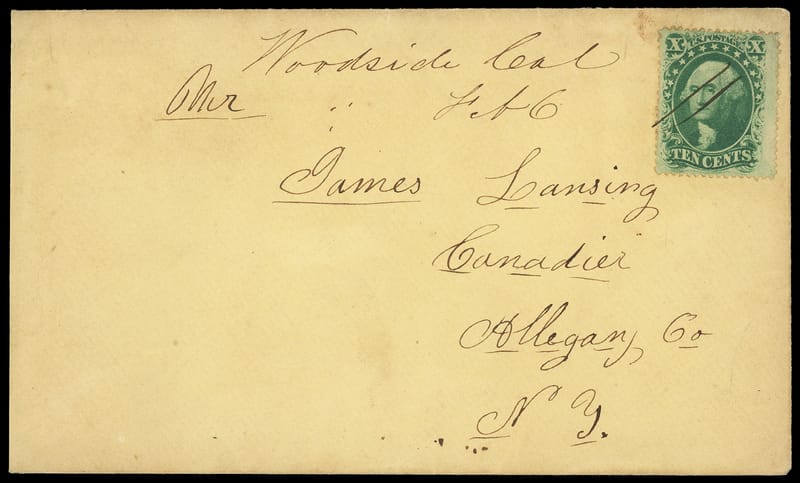 Woodside Cal
Mr " Feb 6
James Lansing
Canadier
Allegan, Co
N Y.
X U.S. POSTAGE X
TEN CENTS